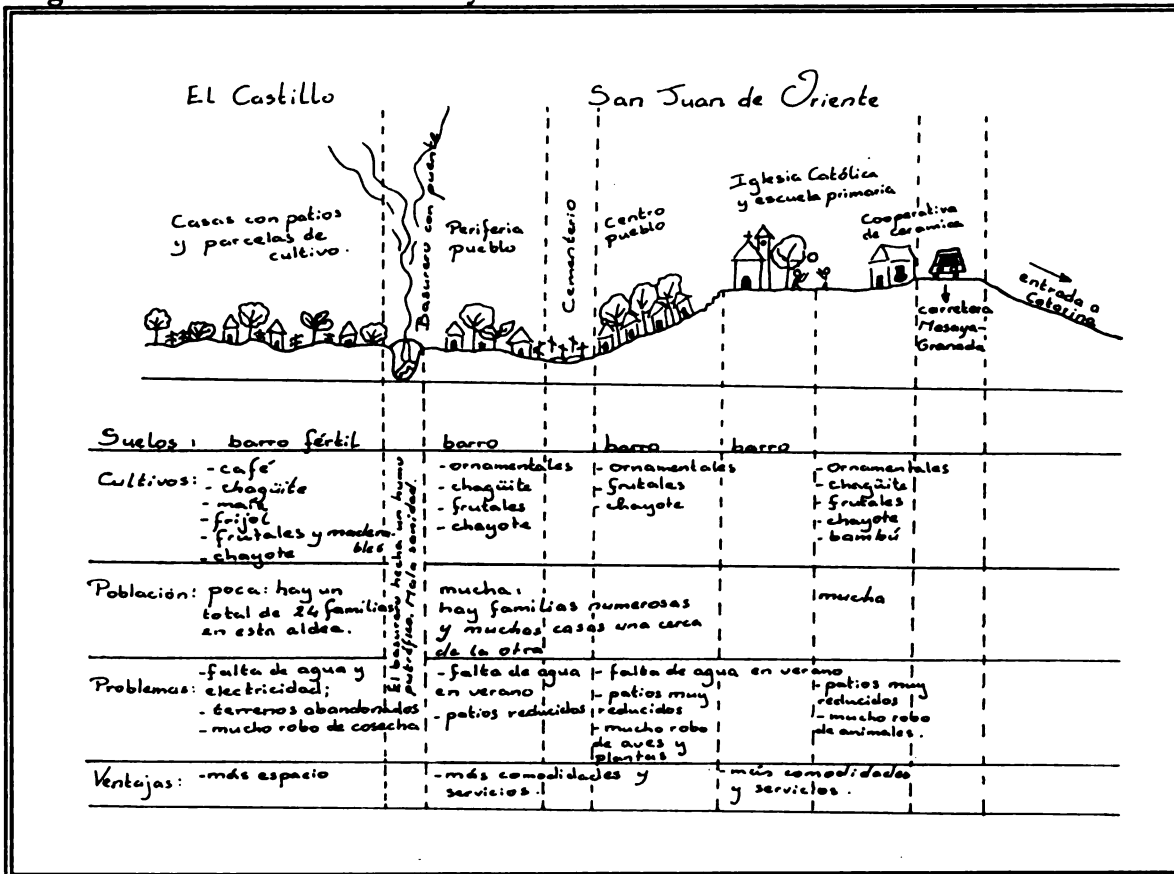 El Castillo
San Juan de Oriente
Casas con patios
y parcelas de
cultivo.
Basurero con puente
Periferia
pueblo
Cementerio
Centro
pueblo
Iglesia Católica
y escuela primaria
Cooperativa
de ceramica
carretera
Masaya-
Granada
entrada a
Catarina
Suelos: barro fértil
barro
barro
barro
Cultivos:
- café
- chagüite
- maíz
- frijol
- frutales y madera-
bles
- chayote
El basurero hecha un humo
putréfico. Mala sanidad.
- ornamentales
- chagüite
- frutales
- chayote
- ornamentales
- frutales
- chayote
- ornamentales
- chagüite
- frutales
- chayote
- bambú
Población: poca: hay un
total de 24 familias
en esta aldea.
mucha:
hay familias numerosas
y muchas casas una cerca
de la otra
mucha
Problemas:
- falta de agua y
electricidad;
- terrenos abandonados
- mucho robo de cosecha
- falta de agua
en verano
- patios reducidos
- falta de agua en verano
- patios muy
reducidos
- mucho robo
de aves y
plantas
- patios muy
reducidos
- mucho robo
de animales.
Ventajas: - más espacio
- más comodidades y
servicios.
- más comodidades
y servicios.